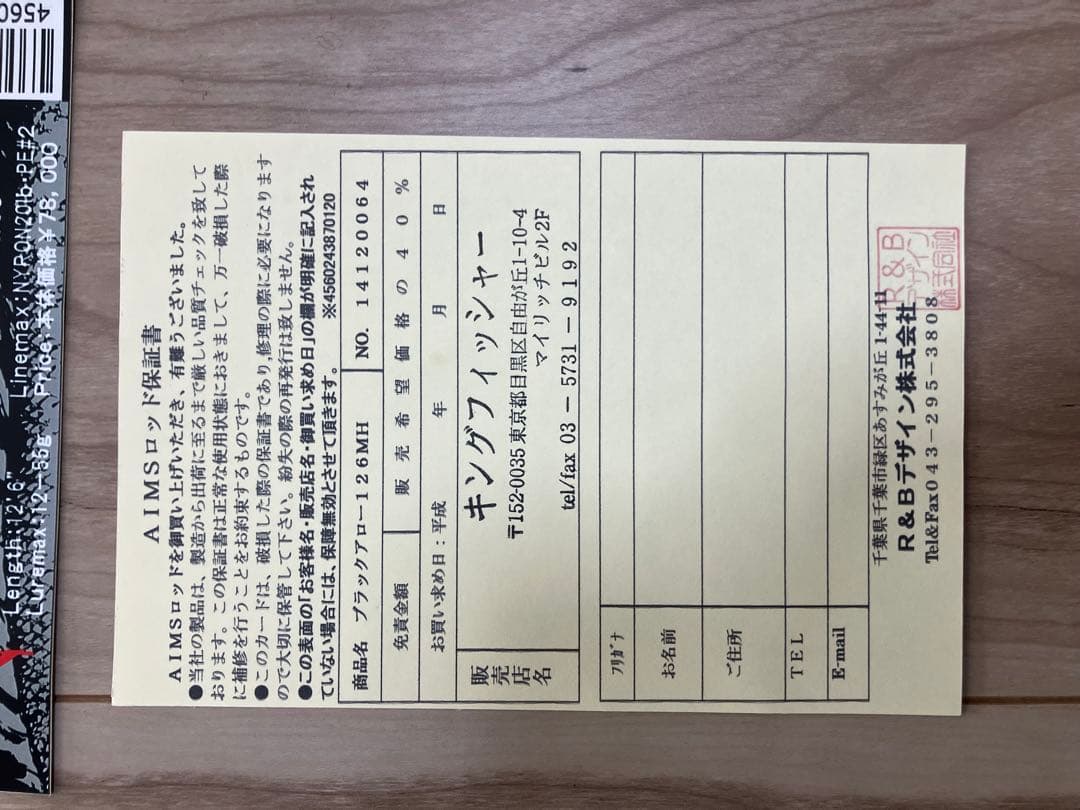 4560
Length:12'6" Linemax:NYRON20lb・PE#2
Luremax:12-56g Price:本体価格￥78,000
AIMSロッド保証書
AIMSロッドを御買い上げいただき、有難うございました。
●当社の製品は、製造から出荷に至るまで厳しい品質チェックを致して
おります。この保証書は正常な使用状態におきまして、万一破損した際
に補修を行うことをお約束するものです。
●このカードは、破損した際の保証書であり,修理の際に必要になります
ので大切に保管して下さい。紛失の際の再発行は致しません。
●この表面の｢お客様名・販売店名・御買い求め日｣の欄が明確に記入され
ていない場合には、保障無効とさせて頂きます。 ※4560243870120
商品名 ブラックアロー126MH NO. 14120064
免責金額 販売希望価格の40%
お買い求め日：平成 年 月 日
販売店名 キングフィッシャー
〒152-0035 東京都目黒区自由が丘1-10-4
マイリッチビル2F
tel/fax 03－5731－9192
ﾌﾘｶﾞﾅ
お名前
ご住所
TEL
E-mail
千葉県千葉市緑区あすみが丘1-44-11
R&Bデザイン株式会社
Tel&Fax043-295-3808
R&B
デザイン
株式会社